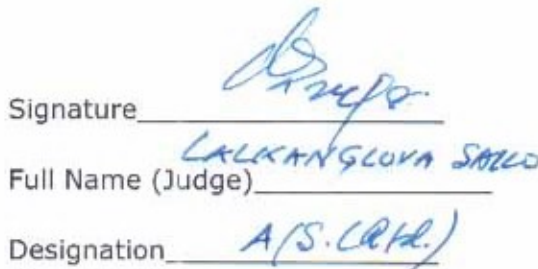 Signature
Full Name (Judge) LALKANGLOVA SAILO
Designation A/S. (Rtd.)